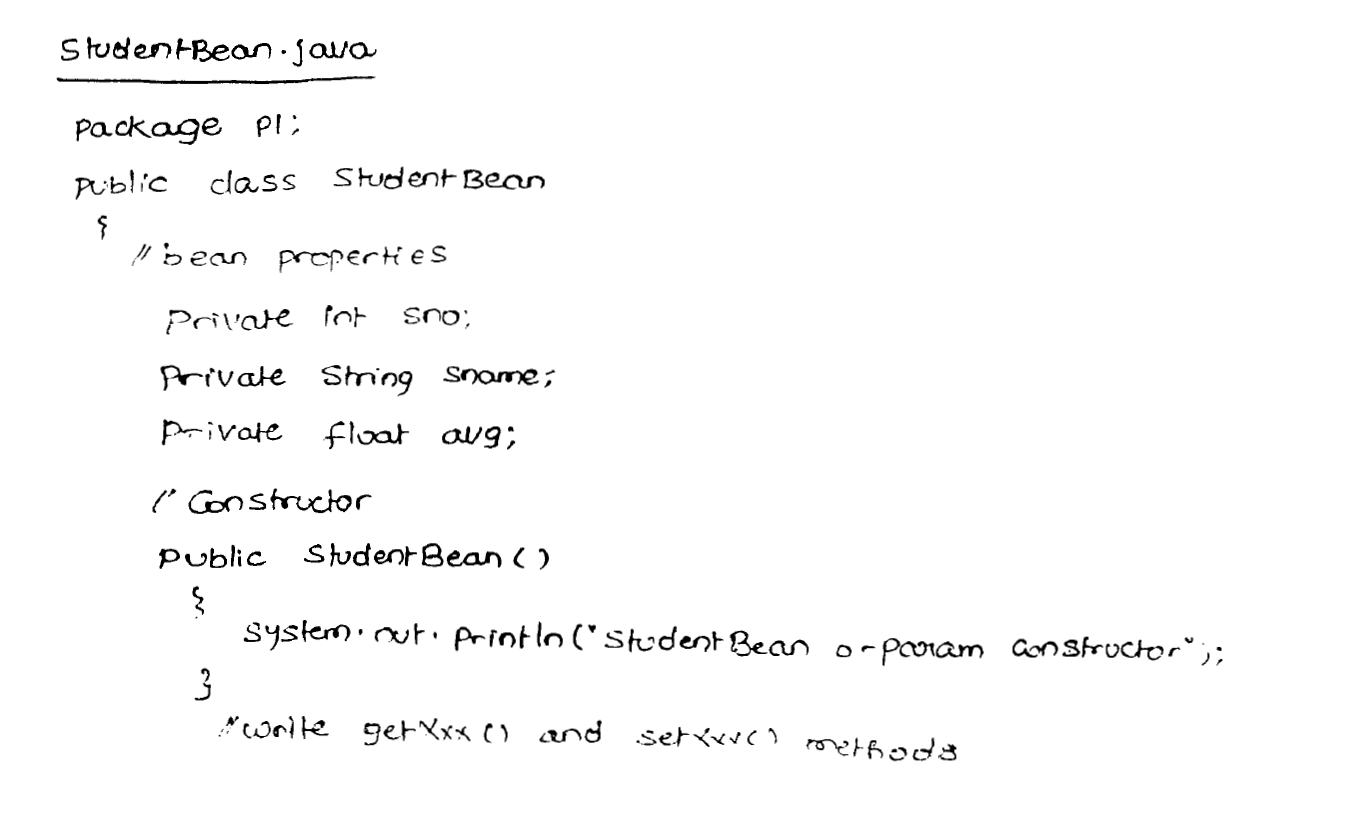 StudentBean.java
package p1;
public class StudentBean
{
// bean properties
private int sno;
private String sname;
private float avg;
// Constructor
public StudentBean()
{
System.out.println("StudentBean 0-param constructor");
}
// write getXxx() and setXxx() methods